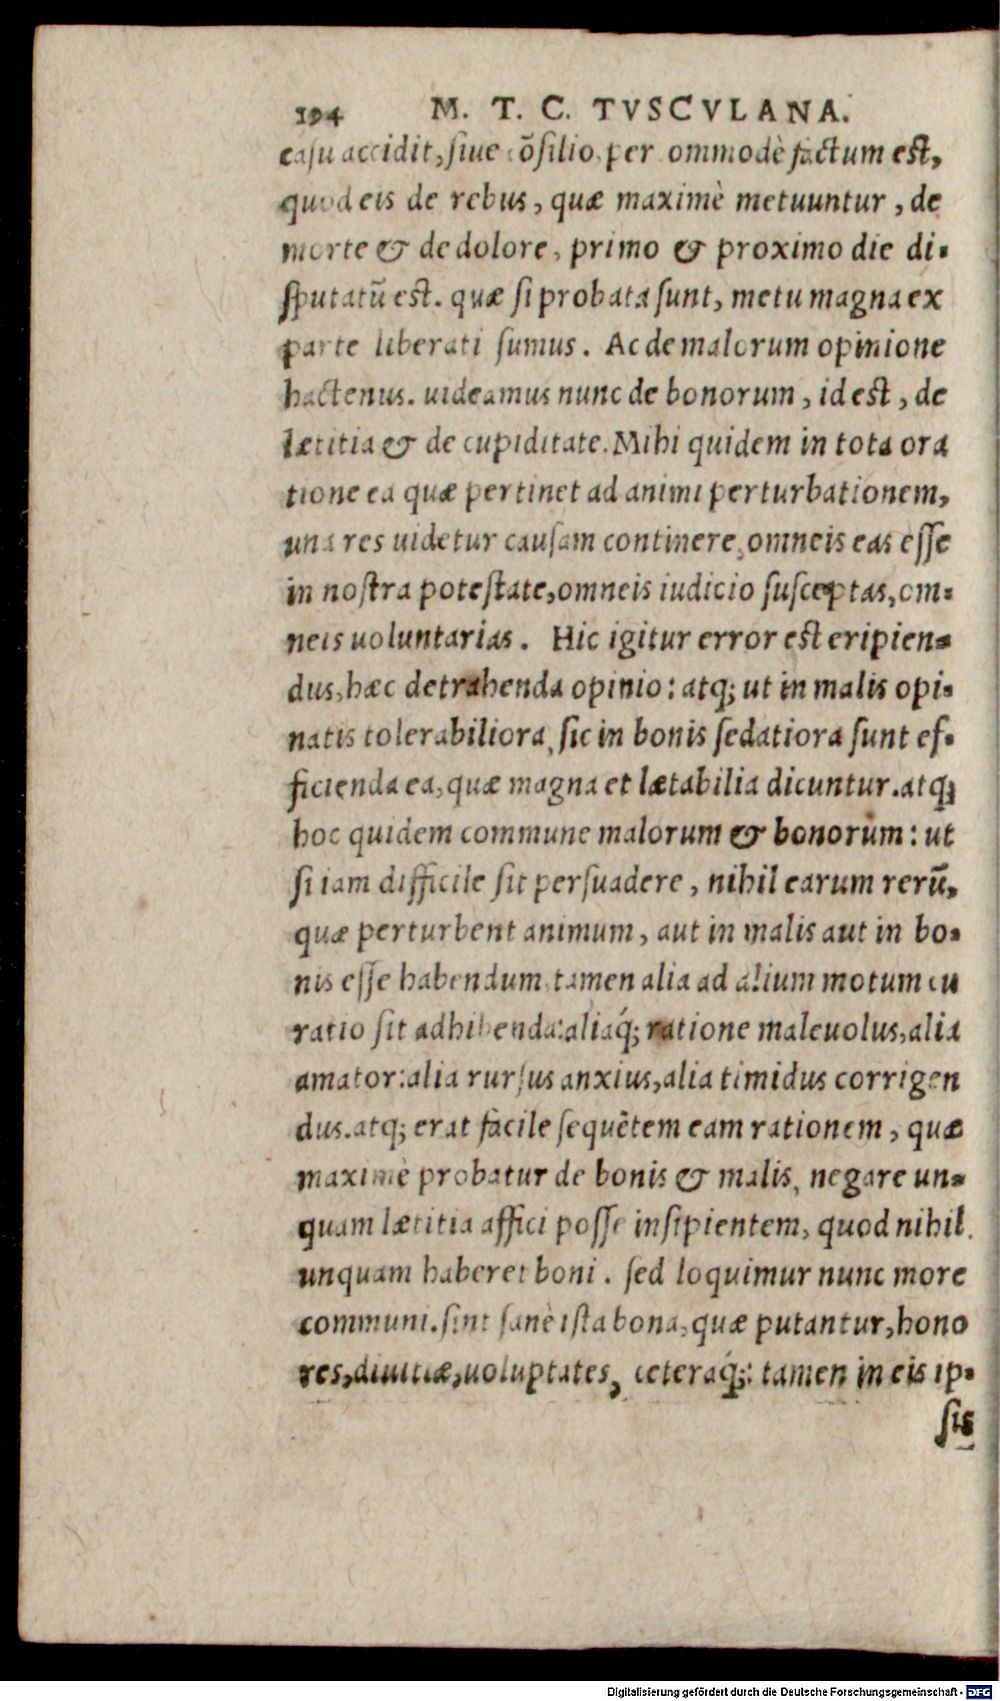 194 M. T. C. TVSCVLANA.
casu accidit, siue cōsilio, per ommodè factum est,
quod eis de rebus, quæ maximè metuuntur, de
morte & de dolore, primo & proximo die di-
sputatū est. quæ si probata sunt, metu magna ex
parte liberati sumus. Ac de malorum opinione
hactenus. uideamus nunc de bonorum, id est, de
lætitia & de cupiditate. Mihi quidem in tota ora
tione ea quæ pertinet ad animi perturbationem,
una res uidetur causam continere, omneis eas esse
in nostra potestate, omneis iudicio susceptas, om-
neis uoluntarias. Hic igitur error est eripien-
dus, hæc detrahenda opinio: atq; ut in malis opi-
natis tolerabiliora, sic in bonis sedatiora sunt ef-
ficienda ea, quæ magna et lætabilia dicuntur. atq;
hoc quidem commune malorum & bonorum: ut
si iam difficile sit persuadere, nihil earum rerū,
quæ perturbent animum, aut in malis aut in bo-
nis esse habendum, tamen alia ad alium motum cu
ratio sit adhibenda: aliaq́; ratione maleuolus, alia
amator: alia rursus anxius, alia timidus corrigen
dus. atq; erat facile sequētem eam rationem, quæ
maximè probatur de bonis & malis, negare un-
quam lætitia affici posse insipientem, quod nihil
unquam haberet boni. sed loquimur nunc more
communi. sint sanè ista bona, quæ putantur, hono
res, diuitiæ, uoluptates, ceteraq́;: tamen in eis ip-
sis
Digitalisierung gefördert durch die Deutsche Forschungsgemeinschaft - DFG